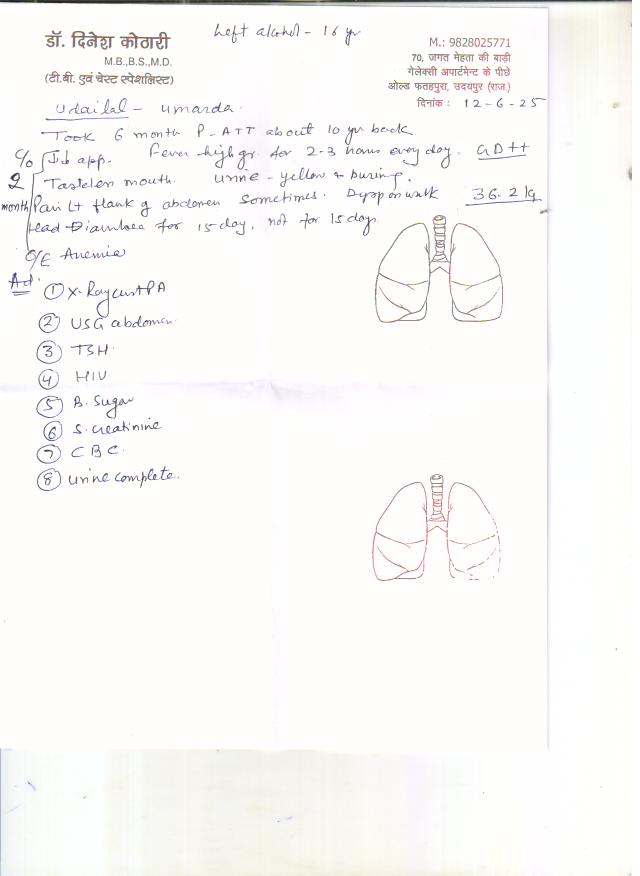 Left alcohol - 16 yr
डॉ. दिनेश कोठारी
M.B.,B.S.,M.D.
(टी.बी. एवं चेस्ट स्पेशलिस्ट)
M.: 9828025771
70, जगत मेहता की बाड़ी
गेलेक्सी अपार्टमेन्ट के पीछे
ओल्ड फतहपुरा, उदयपुर (राज.)
दिनांक : 12-6-25
Udailal - Umarda.
Took 6 month P-ATT about 10 yr back
C/o app. Fever-high gr. for 2-3 hours every day. GD++
2 Tasteless mouth. Urine - yellow + buring.
month Pain Lt flank of abdomen sometimes. Dysp on walk 36.2 kg
Diarrhoea for 15 day, not for 15 day.
O/E Anemia
Ad.
① X-Ray chest PA
② USG abdomen
③ TSH.
④ HIV
⑤ B. Sugar
⑥ S. creatinine
⑦ CBC.
⑧ Urine complete.